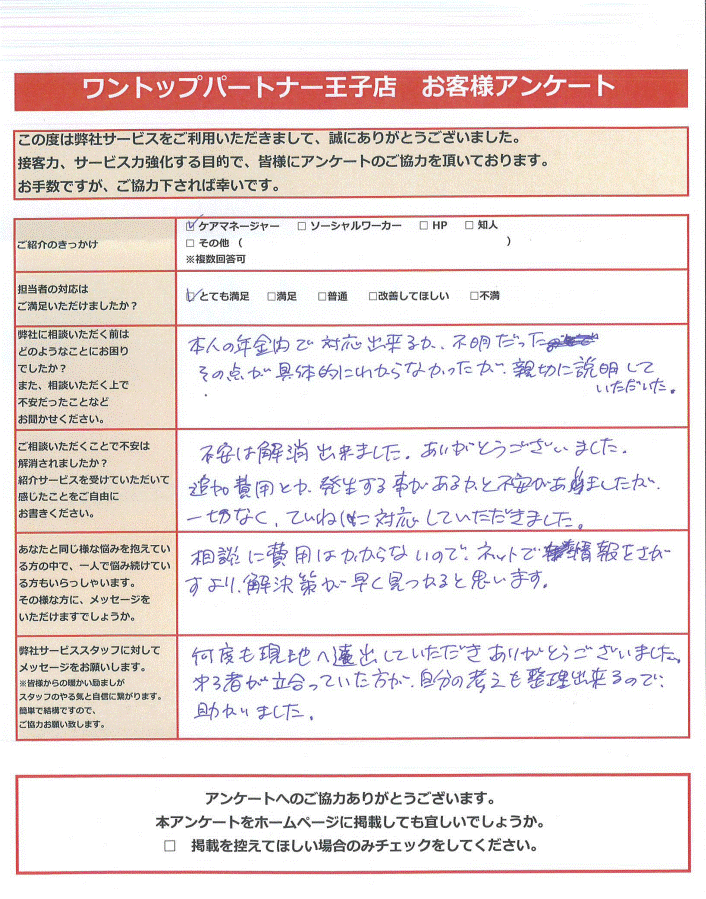 ワントップパートナー王子店 お客様アンケート
この度は弊社サービスをご利用いただきまして、誠にありがとうございました。
接客力、サービス力強化する目的で、皆様にアンケートのご協力を頂いております。
お手数ですが、ご協力下されば幸いです。
ご紹介のきっかけ
☑ ケアマネージャー □ ソーシャルワーカー □ HP □ 知人
□ その他（ ）
※複数回答可
担当者の対応は
ご満足いただけましたか？
☑ とても満足 □満足 □普通 □改善してほしい □不満
弊社に相談いただく前は
どのようなことにお困り
でしたか？
また、相談いただく上で
不安だったことなど
お聞かせください。
本人の年金内で対応出来るか、不明だった
その点が具体的にわからなかったが、親切に説明して
いただいた。
ご相談いただくことで不安は
解消されましたか？
紹介サービスを受けていただいて
感じたことをご自由に
お書きください。
不安は解消出来ました。ありがとうございました。
追加費用とか、発生する事があるかと不安がありましたが、
一切なく、ていねいに対応していただきました。
あなたと同じ様な悩みを抱えてい
る方の中で、一人で悩み続けてい
る方もいらっしゃいます。
その様な方に、メッセージを
いただけますでしょうか。
相談に費用はかからないので、ネットで情報をさが
すより、解決策が早く見つかると思います。
弊社サービススタッフに対して
メッセージをお願いします。
※皆様からの暖かい励ましが
スタッフのやる気と自信に繋がります。
簡単で結構ですので、
ご協力お願い致します。
何度も現地へ出していただきありがとうございました。
者が立合っていた方が、自分の考えも整理出来るので、
助かりました。
アンケートへのご協力ありがとうございます。
本アンケートをホームページに掲載しても宜しいでしょうか。
□ 掲載を控えてほしい場合のみチェックをしてください。